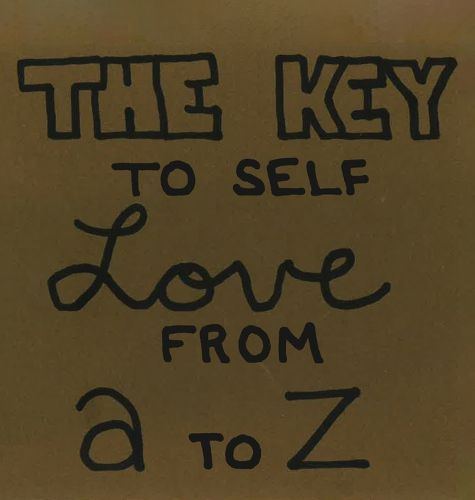 THE KEY
TO SELF
Love
FROM
a TO Z